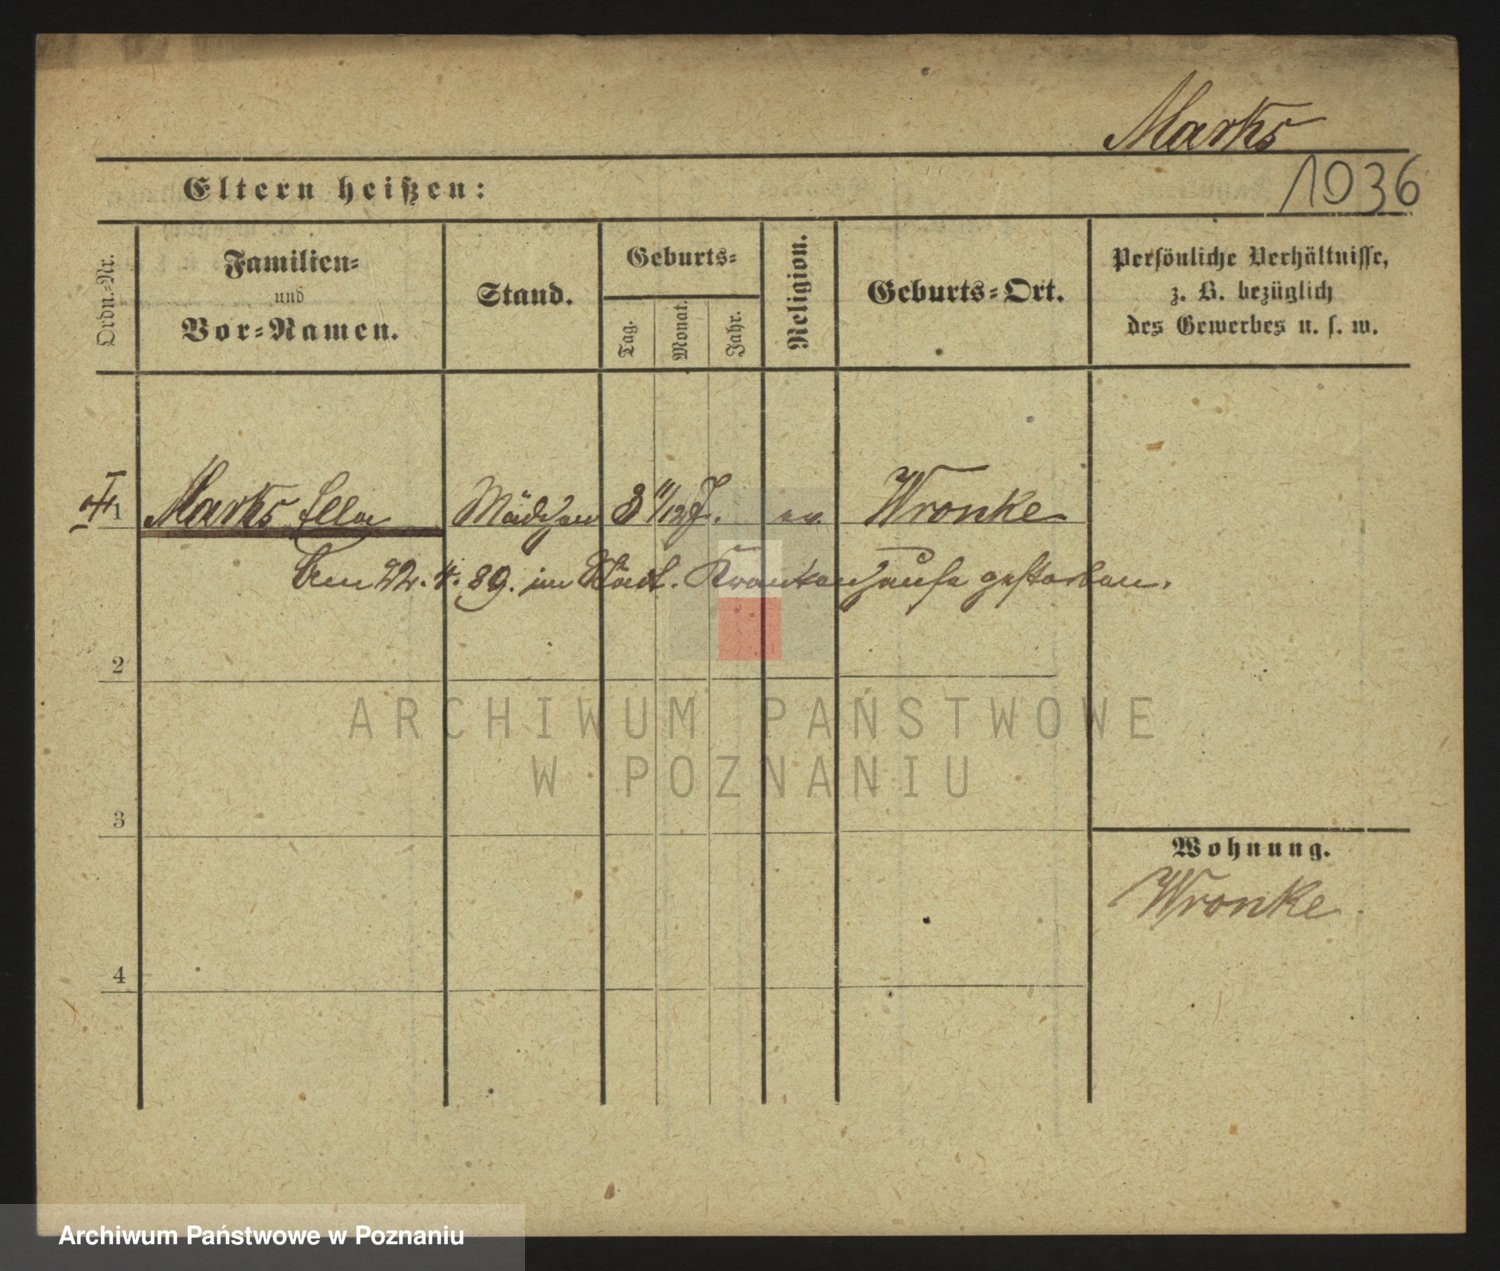 Marks
1036
Eltern heißen:
Ordn.-Nr.
Familien-
und
Vor-Namen.
Stand.
Geburts-
Tag.
Monat.
Jahr.
Religion.
Geburts-Ort.
Persönliche Verhältnisse,
z. B. bezüglich
des Gewerbes u. s. w.
1 Marks Ella Mädchen 3 11/12 J. ev. Wronke
Am 22. 4. 89. im Städt. Krankenhause gestorben.
2
3
4
Wohnung.
Wronke
ARCHIWUM PAŃSTWOWE
W POZNANIU
Archiwum Państwowe w Poznaniu